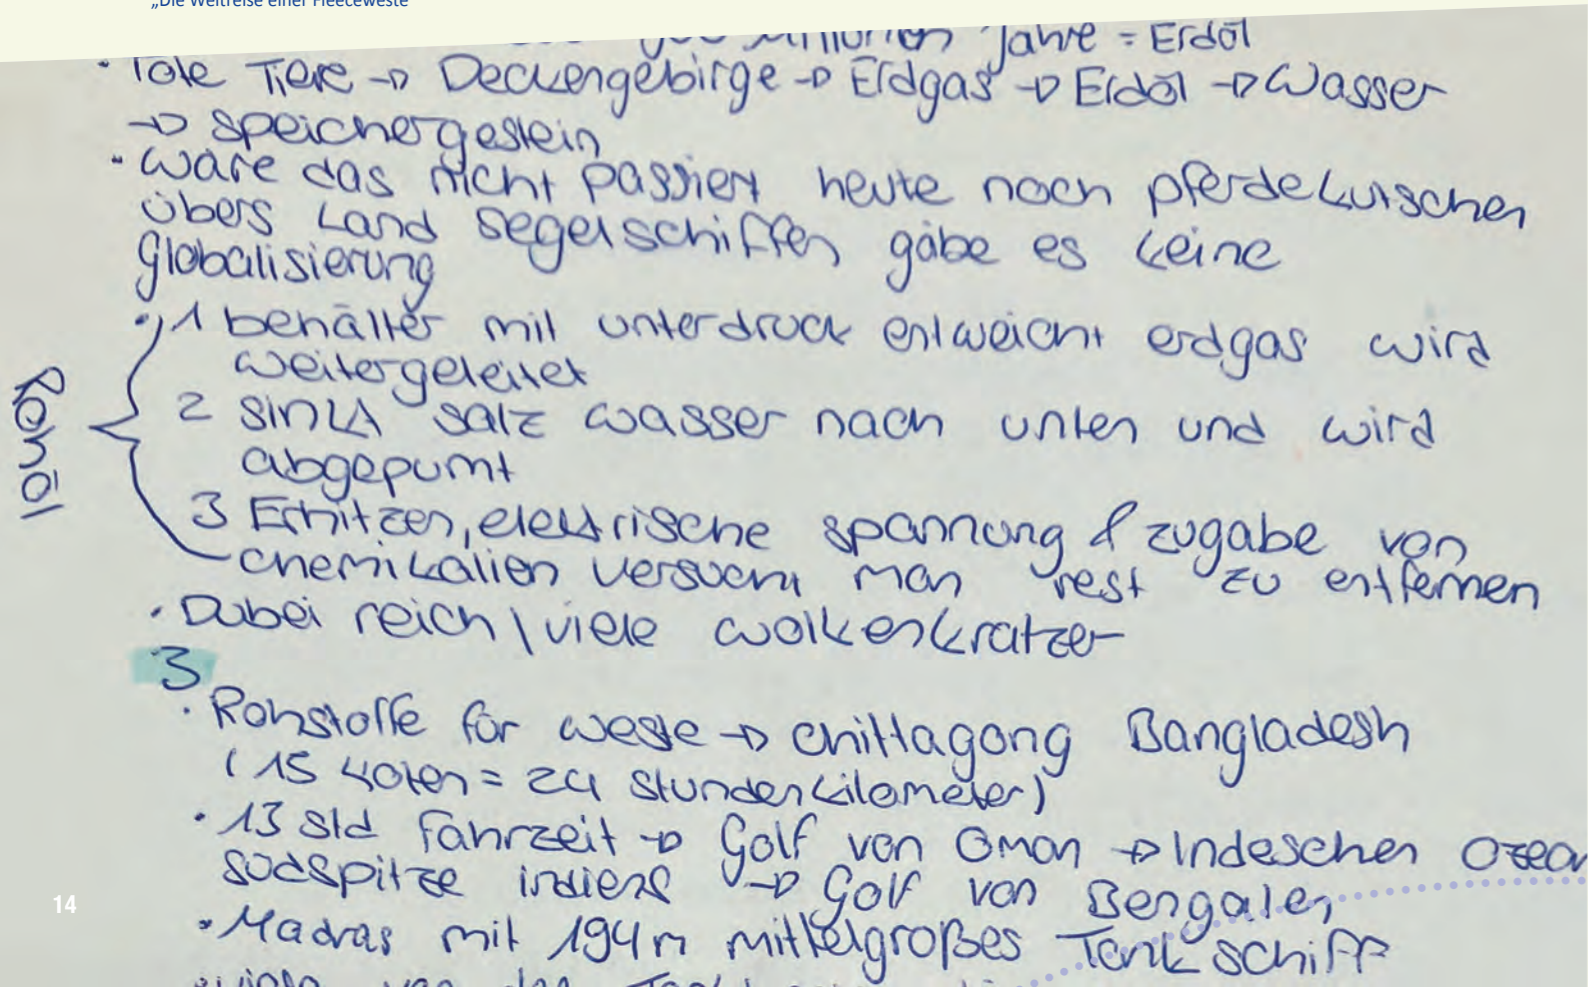 „Die Weltreise einer Fleeceweste"
Jahre = Erdöl
• Tote Tiere → Deckengebirge → Erdgas → Erdöl → Wasser
→ speichergestein
• wäre das nicht passiert heute noch pferdekutschen
übers Land segelschiffen gäbe es keine
Globalisierung
Rohöl
• 1 behälter mit unterdruck entweicht erdgas wird
weitergeleitet
2 sinkt salz wasser nach unten und wird
abgepumt
3 Erhitzen, elektrische spannung & zugabe von
chemikalien versucht man rest zu entfernen
• Dubei reich \ viele wolkenkratzer
3
• Rohstoffe für weste → chittagong Bangladesh
( 15 Koten = 24 Stundenkilometer)
• 13 std Fahrzeit → Golf von Oman → Indeschen Ozean
südspitze indiens → Golf von Bengalen
• Madras mit 194m mittelgroßes Tankschiff
14